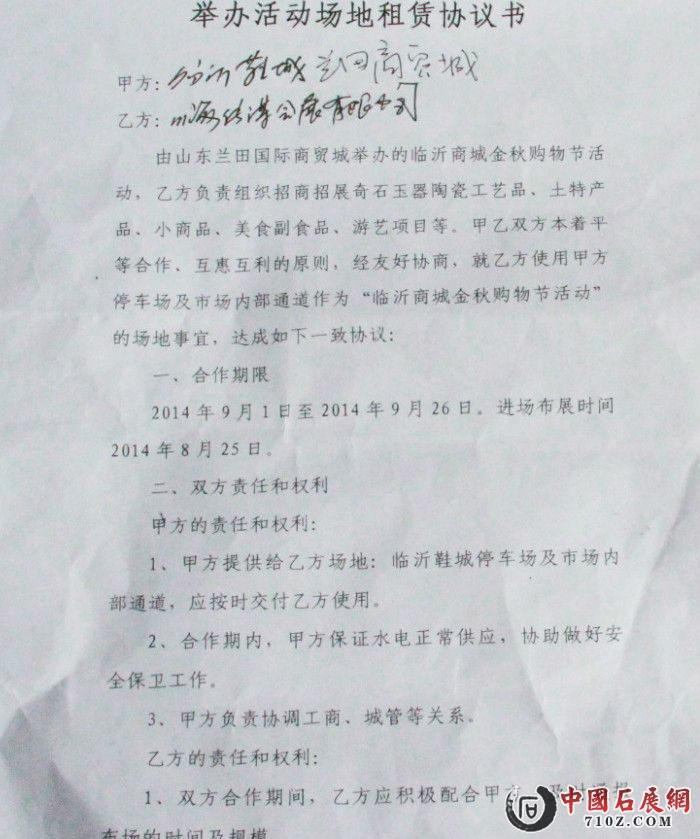 举办活动场地租赁协议书
甲方：临沂鞋城 兰田商贸城
乙方：展有限公司
由山东兰田国际商贸城举办的临沂商城金秋购物节活
动，乙方负责组织招商招展奇石玉器陶瓷工艺品、土特产
品、小商品、美食副食品、游艺项目等。甲乙双方本着平
等合作、互惠互利的原则，经友好协商，就乙方使用甲方
停车场及市场内部通道作为“临沂商城金秋购物节活动”
的场地事宜，达成如下一致协议：
一、合作期限
2014 年 9 月 1 日至 2014 年 9 月 26 日。进场布展时间
2014 年 8 月 25 日。
二、双方责任和权利
甲方的责任和权利：
1、甲方提供给乙方场地：临沂鞋城停车场及市场内
部通道，应按时交付乙方使用。
2、合作期内，甲方保证水电正常供应，协助做好安
全保卫工作。
3、甲方负责协调工商、城管等关系。
乙方的责任和权利：
1、双方合作期间，乙方应积极配合甲方
市场的时间及规模
中國石展網
710Z.COM